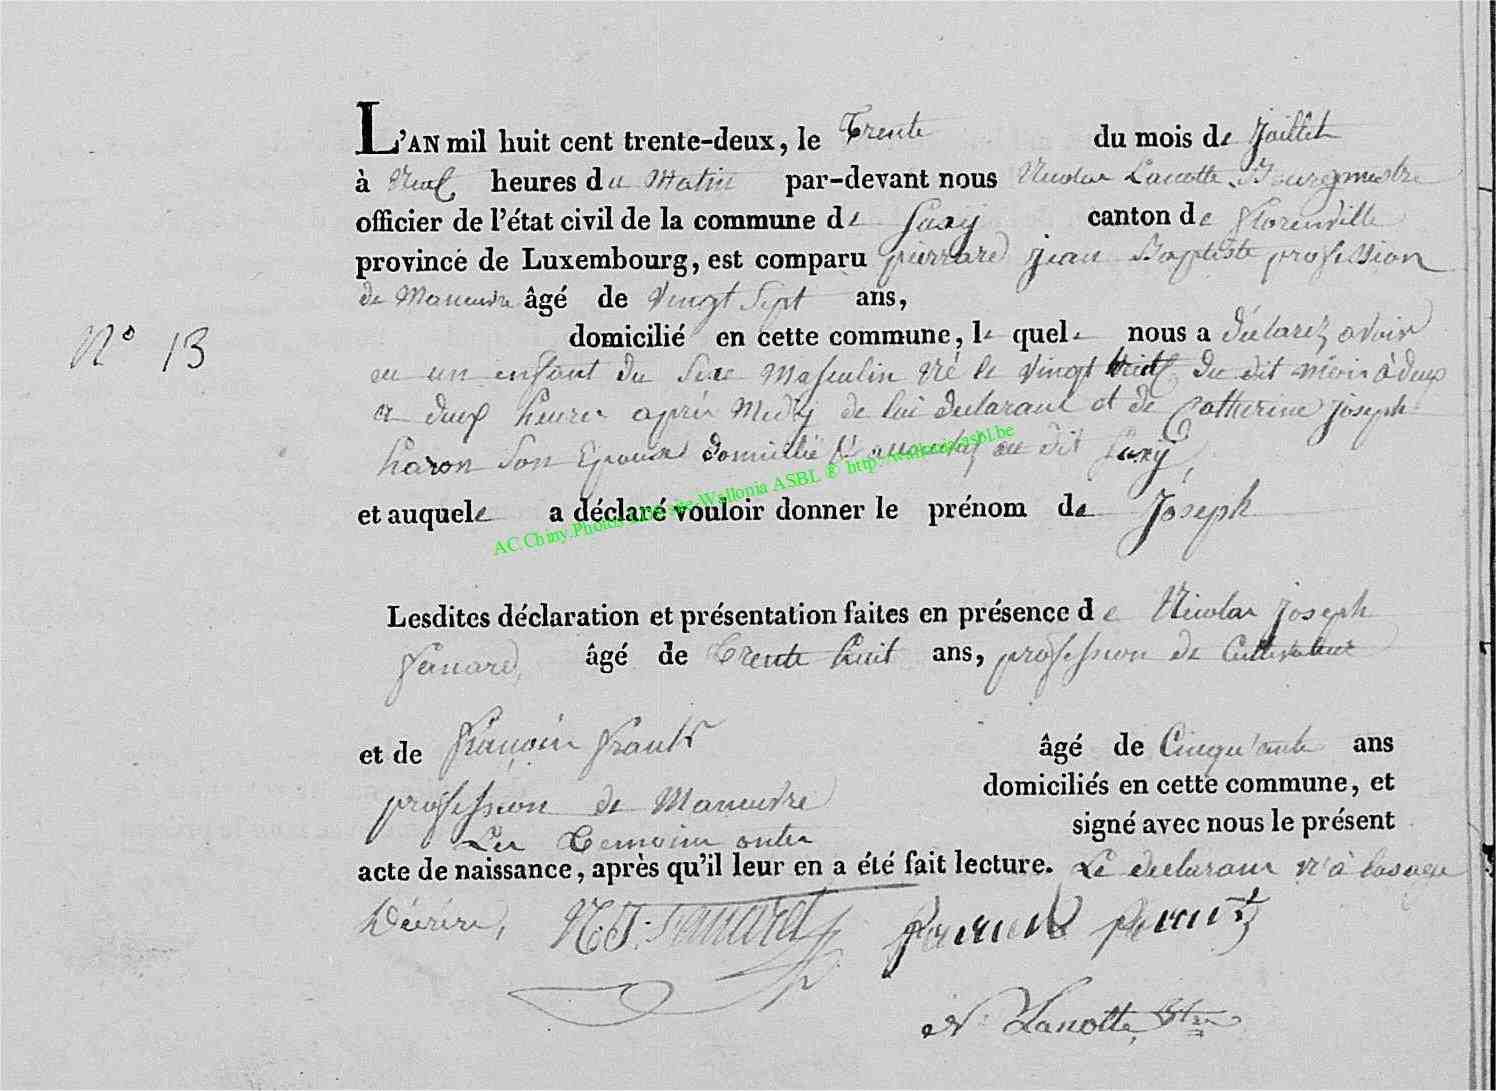 L'AN mil huit cent trente-deux, le Trente du mois de Juillet
à Neuf heures du Matin par-devant nous Nicolas Lanotte Bourgmestre
officier de l'état civil de la commune de canton de florenville
province de Luxembourg, est comparu pierrard jean Baptiste profession
de Maneuvre âgé de Vingt Sept ans,
domicilié en cette commune, le quele nous a déclarez avoir
N° 13
eu un enfant du Sexe Masculin Né le Vingt huit du dit mois à deux
deux heures après Midy de lui declarant et de Catherine joseph
haron Son Epouse domicilié au dit
et auquele a déclaré vouloir donner le prénom de Joseph
AC.Chiny.Photos Wallonia ASBL ® http:
Lesdites déclaration et présentation faites en présence de Nicolas Joseph
âgé de Trente huit ans, profession de Cultivateur
et de françois frantz âgé de Cinqu'ante ans
profession de Maneuvre domiciliés en cette commune, et
Les Temoins ontes signé avec nous le présent
acte de naissance, après qu'il leur en a été fait lecture. Le declarant n'à
Décrire,
N. Lanotte,